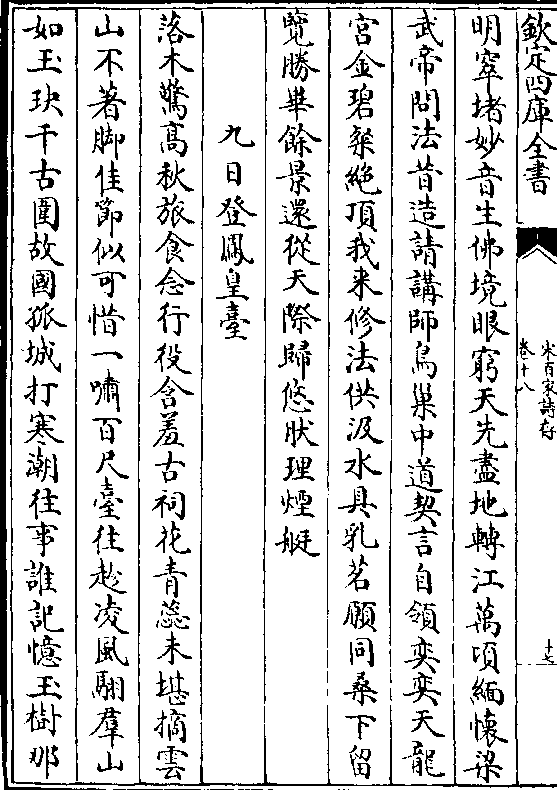 欽定四庫全書
宋百家詩存
卷十八
十七
明窣堵妙音生佛境眼窮天先盡地轉江萬頃緬懷梁
武帝問法昔造請講師鳥巢中道契言自領奕奕天龍
宮金碧粲絶頂我来修法供汲水具乳茗願同桑下留
覽勝畢餘景還從天際歸悠狀理煙艇
九日登鳳皇臺
落木驚高秋旅食念行役含羞古祠花青蕊未堪摘雲
山不著脚佳節似可惜一嘯百尺臺往趁凌風翮羣山
如玉玦千古圍故國孤城打寒潮往事誰記憶玉樹那